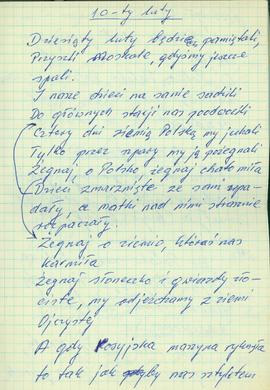 10-ty luty
Dziesiąty luty będziem pamiętali,
Przyszli Moskale gdyśmy jeszcze
spali.
I nasze dzieci na sanie sadzili
Do głównych stacji nas podwozili
Cztery dni ziemią Polską my jechali
Tylko przez szpary my ją pożegnali
Żegnaj, o Polsko, żegnaj chato miła
Dzieci zmarznięte ze sań wpa-
dały, a matki nad nimi strasznie
rozpaczały.
Żegnaj o ziemio, któraś nas
karmiła
Żegnaj słoneczko i gwiazdy zło-
ciste, my odjeżdżamy z ziemi
Ojczystej
A gdy Rosyjska maszyna ryknęła
to tak jak by nas sztyletem